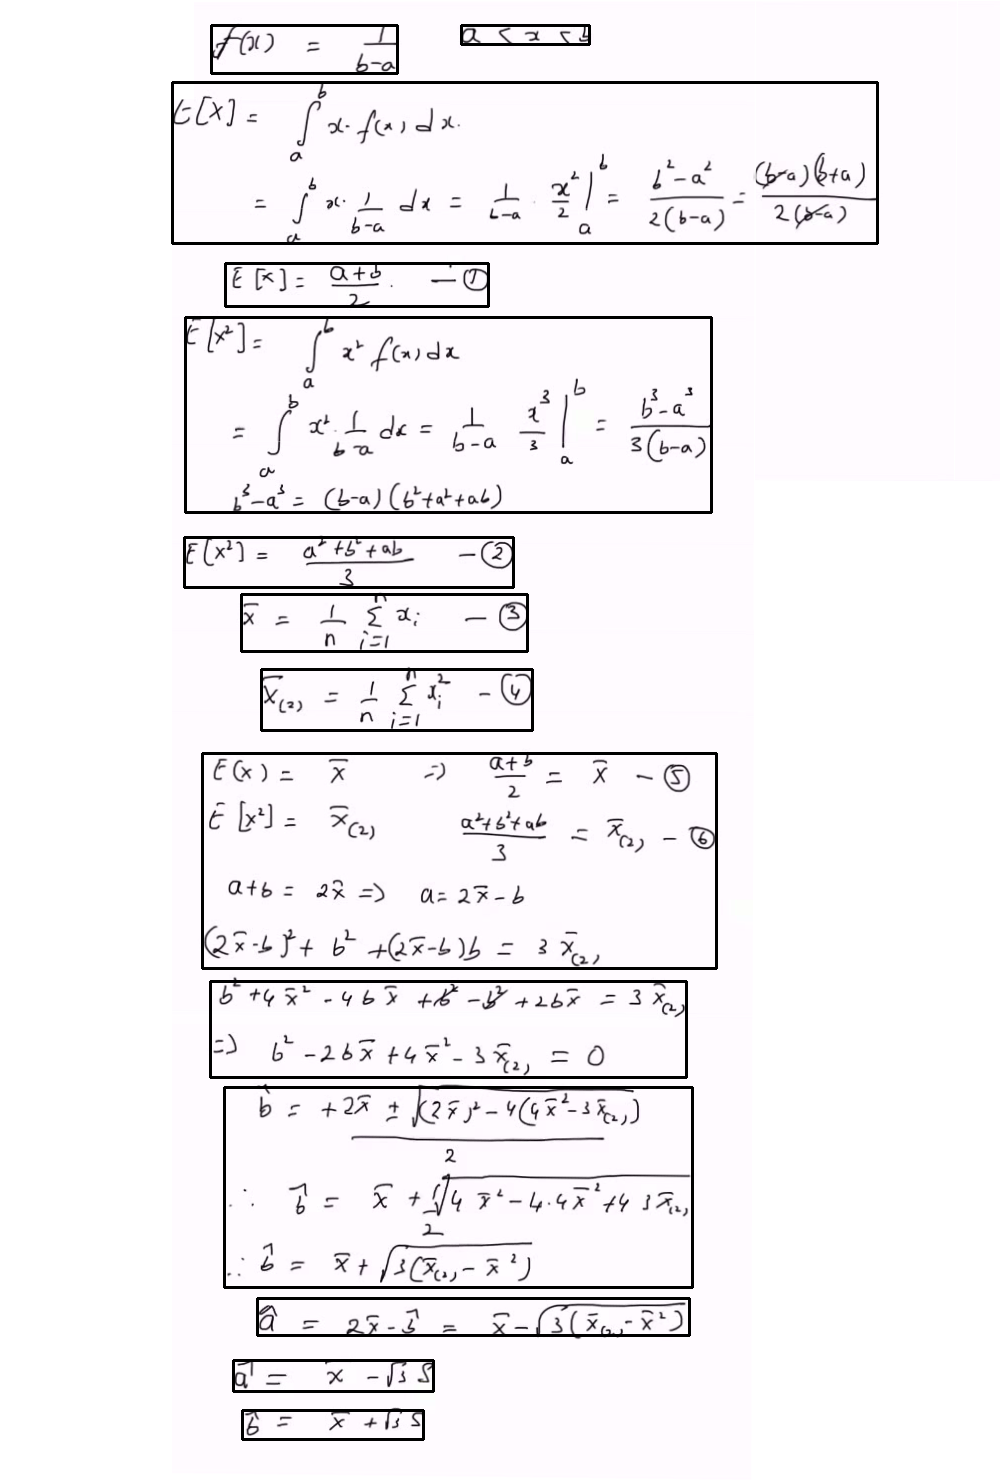 f(x) = 1/(b-a)    a < x < b
E[X] = ∫_a^b x· f(x) dx.
= ∫_a^b x· 1/(b-a) dx = 1/(b-a) · x²/2 |_a^b = (b²-a²)/(2(b-a)) = (b-a)(b+a)/(2(b-a))
E[x] = (a+b)/2 . — ①
E[x²] = ∫_a^b x² f(x) dx
= ∫_a^b x² · 1/(b-a) dx = 1/(b-a) x³/3 |_a^b = (b³-a³)/(3(b-a))
b³-a³ = (b-a)(b²+a²+ab)
E[x²] = (a²+b²+ab)/3 — ②
x̄ = 1/n Σ_{i=1}^n x_i — ③
x̄_(2) = 1/n Σ_{i=1}^n x_i² — ④
E(x) = x̄ => (a+b)/2 = x̄ — ⑤
E[x²] = x̄_(2)    (a²+b²+ab)/3 = x̄_(2) — ⑥
a+b = 2x̄ => a = 2x̄-b
(2x̄-b)² + b² + (2x̄-b)b = 3 x̄_(2)
b² + 4x̄² - 4bx̄ + b² - b² + 2bx̄ = 3 x̄_(2)
=> b² - 2bx̄ + 4x̄² - 3x̄_(2) = 0
b̂ = (+2x̄ ± √((2x̄)² - 4(4x̄²-3x̄_(2))))/2
∴ b̂ = x̄ + √(4x̄² - 4·4x̄² + 4 3x̄_(2))/2
∴ b̂ = x̄ + √(3(x̄_(2) - x̄²))
â = 2x̄ - b̂ = x̄ - √(3(x̄_(2) - x̄²))
â = x̄ - √3 S
b̂ = x̄ + √3 S